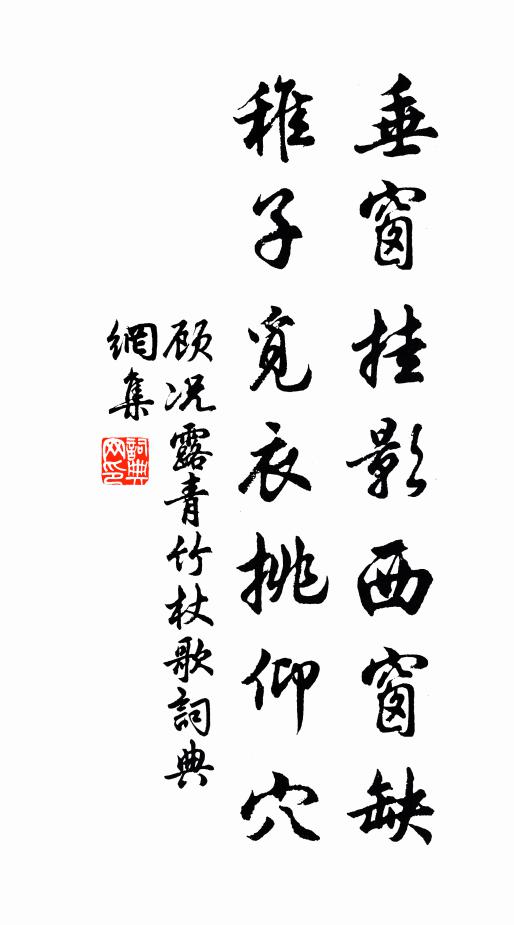 垂窗挂影西窗缺
稚子觅衣挑仰穴
顾况露青竹杖歌詞典
網集
詞典
网印